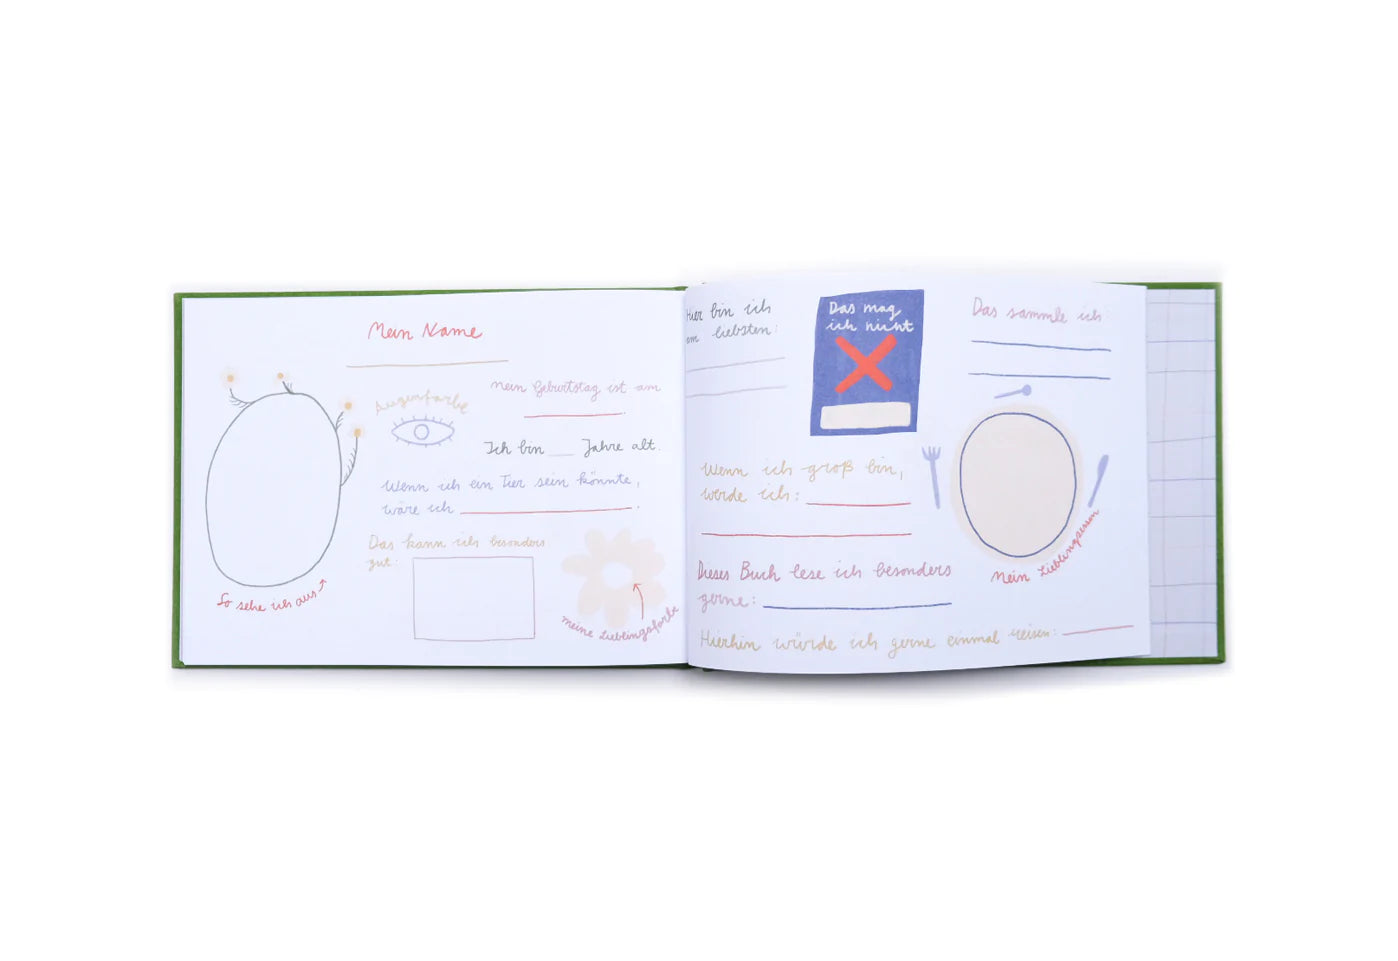 Mein Name
Augenfarbe
Mein Geburtstag ist am
Ich bin ___ Jahre alt.
Wenn ich ein Tier sein könnte,
wäre ich ___.
Das kann ich besonders
gut:
So sehe ich aus
meine Lieblingsfarbe
Hier bin ich
am liebsten:
Das mag
ich nicht
Das sammle ich:
Wenn ich groß bin,
werde ich:
Mein Lieblingsessen
Dieses Buch lese ich besonders
gerne:
Hierhin würde ich gerne einmal reisen: